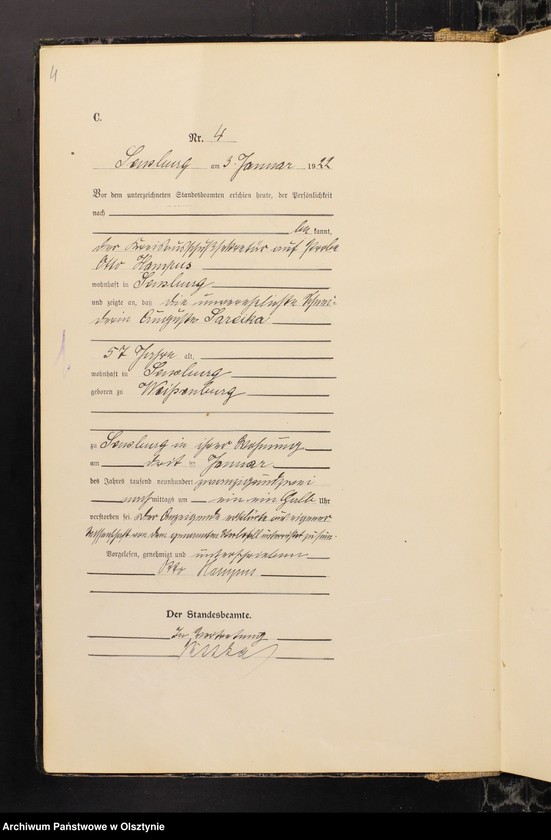 4
C.
Nr. 4
Sensburg am 3. Januar 1922
Vor dem unterzeichneten Standesbeamten erschien heute, der Persönlichkeit
nach
be kannt,
der Kreisausschußsekretär auf Probe
Otto Kampus
wohnhaft in Sensburg
und zeigte an, daß die unverehelichte Schnei-
derin Auguste Sareika
57 Jahre alt,
wohnhaft in Sensburg
geboren zu Weißenburg
zu Sensburg in ihrer Wohnung
am drei ten Januar
des Jahres tausend neunhundert zwanzigundzwei
nach mittags um ein ein halb Uhr
verstorben sei. Der Anzeigende erklärte aus eigener
Wissenschaft von dem genannten Sterbefall unterrichtet zu sein.
Vorgelesen, genehmigt und unterschrieben
Otto Kampus
Der Standesbeamte.
In Vertretung
Archiwum Państwowe w Olsztynie